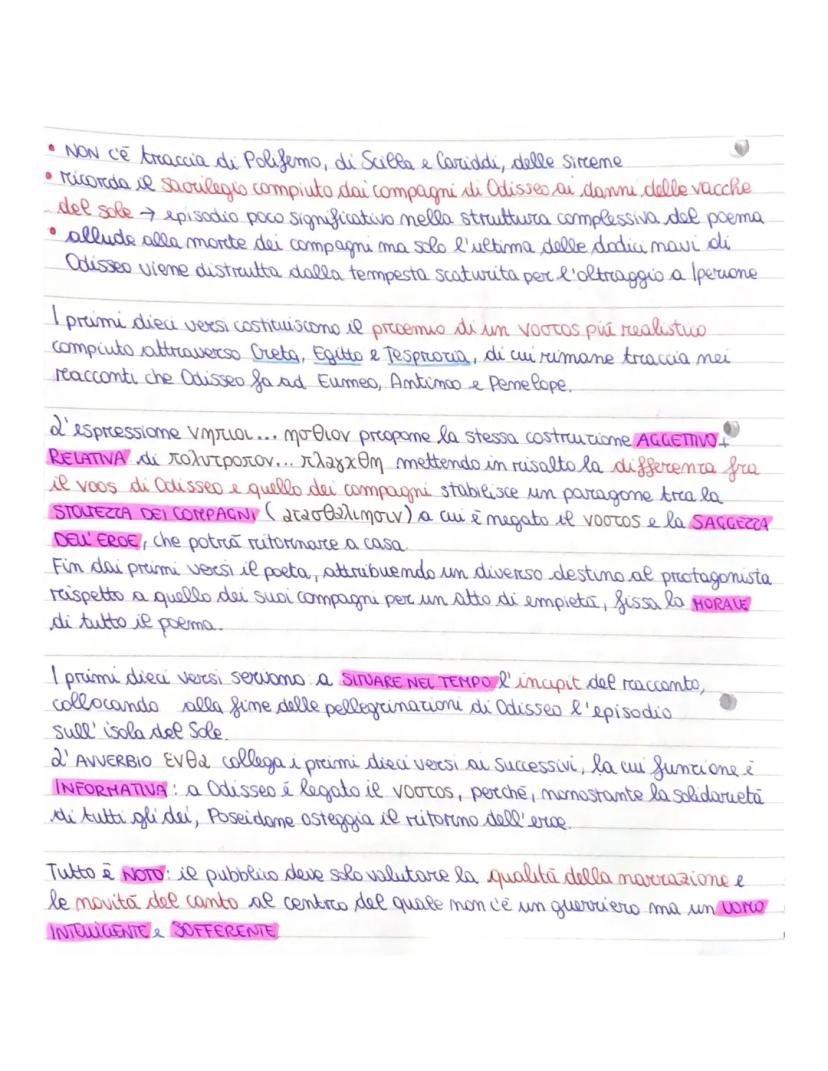 • NON c'è traccia di Polifemo, di Scilla e Cariddi, delle sirene
• ricorda il sacrilegio compiuto dai compagni di Odisseo ai danni delle vacche
del sole → episodio poco significativo nella struttura complessiva del poema
• allude alla morte dei compagni ma solo l'ultima delle dodici navi di
Odisseo viene distrutta dalla tempesta scaturita per l'oltraggio a Iperione
I primi dieci versi costituiscono il proemio di un νοστος più realistico
compiuto attraverso Creta, Egitto e Tesprozia, di cui rimane traccia nei
racconti che Odisseo fa ad Eumeo, Antinoo e Penelope.
L'espressione νηπιοι... ησθιον propone la stessa costruzione AGGETTIVO +
RELATIVA di πολυτροπον... πλαγχθη mettendo in risalto la differenza fra
il νοος di Odisseo e quello dei compagni stabilisce un paragone tra la
STOLTEZZA DEI COMPAGNI (ατασθαλιησιν) a cui è negato il νοστος e la SAGGEZZA
DELL'EROE, che potrà ritornare a casa.
Fin dai primi versi il poeta, attribuendo un diverso destino al protagonista
rispetto a quello dei suoi compagni per un atto di empietà, fissa la MORALE
di tutto il poema.
I primi dieci versi servono a SITUARE NEL TEMPO l'incipit del racconto,
collocando alla fine delle pellegrinazioni di Odisseo l'episodio
sull'isola del Sole.
L'AVVERBIO ενθα collega i primi dieci versi ai successivi, la cui funzione è
INFORMATIVA: a Odisseo è legato il νοστος, perchè, nonostante la solidarietà
di tutti gli dei, Poseidone osteggia il ritorno dell'eroe.
Tutto è NOTO: il pubblico deve solo valutare la qualità della narrazione e
le novità del canto al centro del quale non c'è un guerriero ma un UOMO
INTELLIGENTE e SOFFERENTE